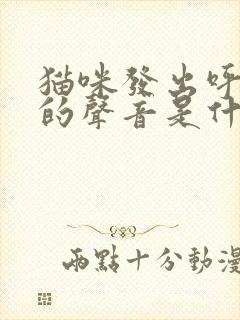 猫咪發出呼
的聲音是什
兩點十分動漫